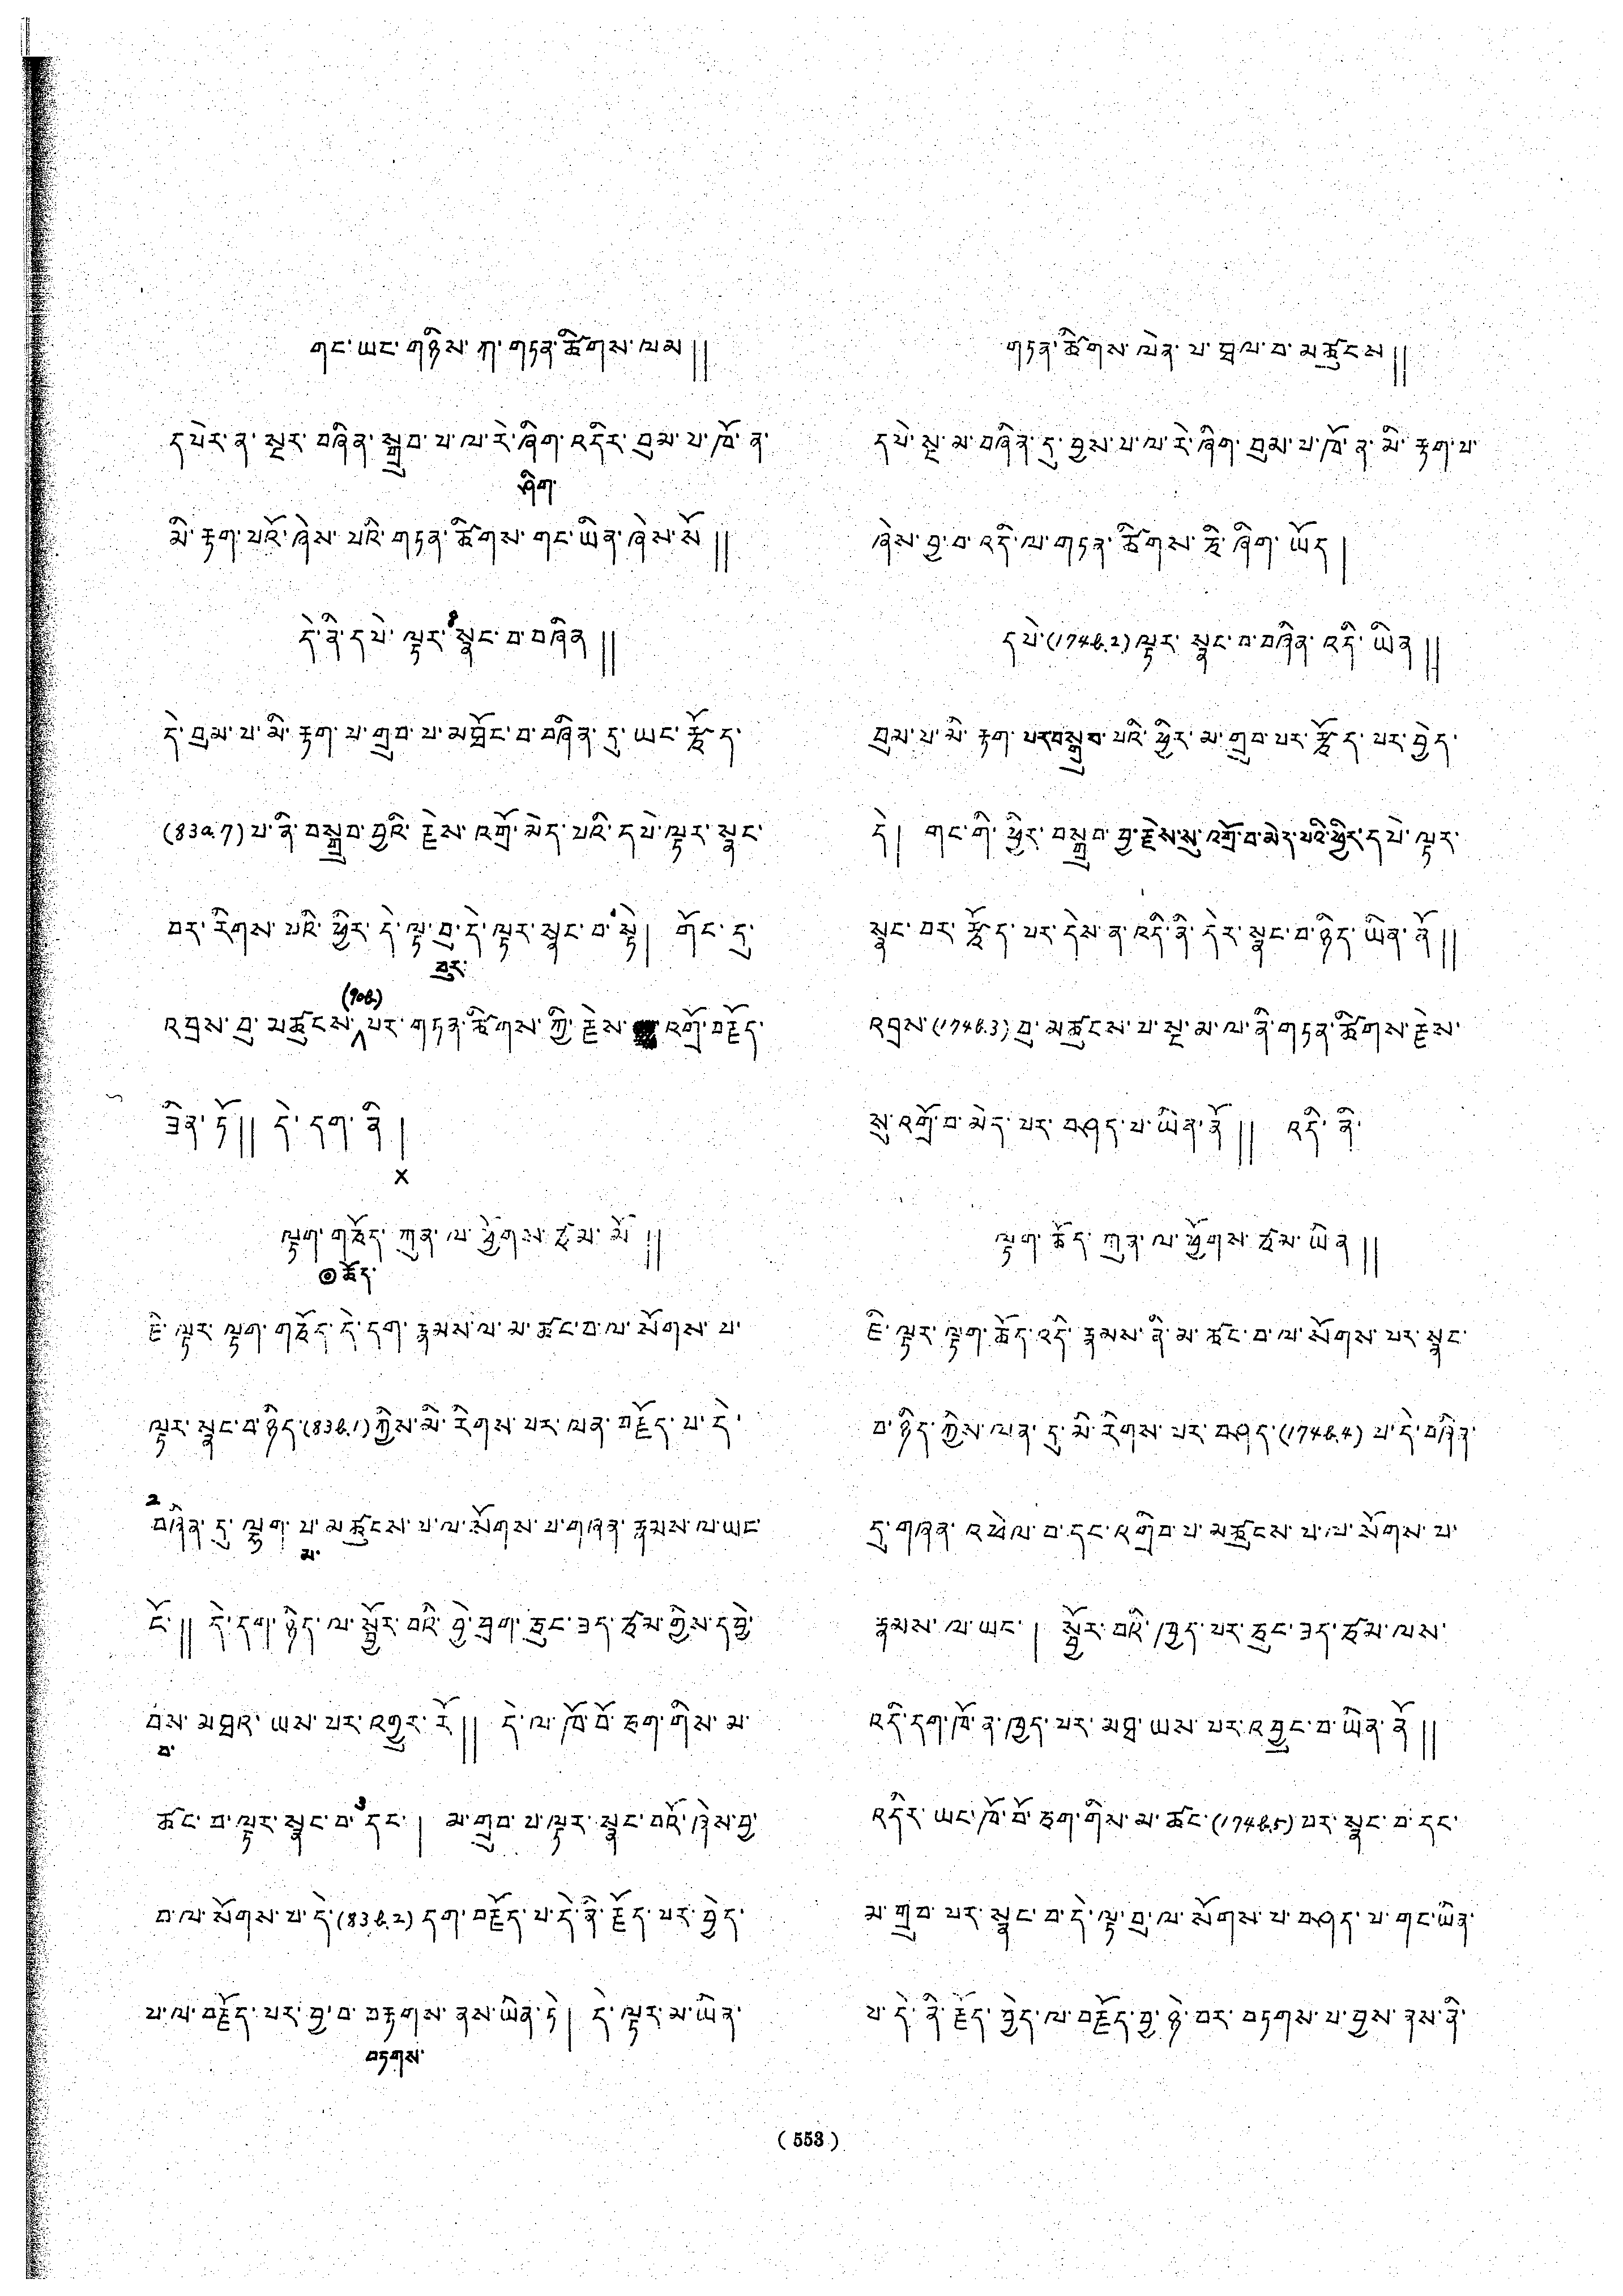 གང་ཡང་གཉིས་ཀ་གཏན་ཚིགས་ལམ༎
དཔེར་ན་སྔར་བཞིན་སྒྲུབ་པ་ལ་རེ་ཞིག་འདིར་བུམ་པ་ཁོ་ན་
ཤིག་
མི་རྟག་པའོ་ཞེས་པའི་གཏན་ཚིགས་གང་ཡིན་ཞེས་སོ༎
དེ་ནི་དཔེ་ལྟར་སྣང་བ་བཞིན༎
དེ་བུམ་པ་མི་རྟག་པ་གྲུབ་པ་མཐོང་བ་བཞིན་དུ་ཡང་རྩོད་
(83a.7) པ་ནི་བསྒྲུབ་བྱའི་རྗེས་འགྲོ་མེད་པའི་དཔེ་ལྟར་སྣང་
བར་རིགས་པའི་ཕྱིར་དེ་ལྟ་བུ་དེ་ལྟར་སྣང་བ་སྟེ། གོང་དུ་
བུར་
(90b)
འབྲས་བུ་མཚུངས་པར་གཏན་ཚིགས་ཀྱི་རྗེས་འགྲོ་བརྗོད་
ཟིན་ཏོ༎ དེ་དག་ནི།
x
ལྟག་གཅོད་ཀུན་ལ་ཕྱོགས་ཙམ་མོ༎
◎ཆོད་
ཇི་ལྟར་ལྟག་གཅོད་དེ་དག་རྣམས་ལ་མ་ཚང་བ་ལ་སོགས་པ་
ལྟར་སྣང་བ་ཉིད་(83b.1) ཀྱིས་མི་རིགས་པར་ལན་བརྗོད་པ་དེ་
2
བཞིན་དུ་ལྷག་པ་མཚུངས་པ་ལ་སོགས་པ་གཞན་རྣམས་ལ་ཡང་
མ་
ངོ་༎ དེ་དག་ཉིད་ལ་སྦྱོར་བའི་བྱེ་བྲག་ཅུང་ཟད་ཙམ་གྱིས་དབྱེ་
བས་མཐའ་ཡས་པར་འགྱུར་རོ༎ དེ་ལ་ཁོ་བོ་ཅག་གིས་མ་
བ་
ཚང་བ་ལྟར་སྣང་བ་3དང་། མ་གྲུབ་པ་ལྟར་སྣང་བའོ་ཞེས་བྱ་
བ་ལ་སོགས་པ་དེ་(83b.2) དག་བརྗོད་པ་དེ་ནི་རྗོད་པར་བྱེད་
པ་ལ་བརྗོད་པར་བྱ་བ་བརྟགས་ནས་ཡིན་ཏེ། དེ་ལྟར་མ་ཡིན་
བཏགས་
གཏན་ཚིགས་ལེན་པ་ཐལ་བ་མཚུངས༎
དཔེ་སྔ་མ་བཞིན་དུ་བྱས་པ་ལ་རེ་ཞིག་བུམ་པ་ཁོ་ན་མི་རྟག་པ་
ཞེས་བྱ་བ་འདི་ལ་གཏན་ཚིགས་ཅི་ཞིག་ཡོད།
དཔེ་(174b.2) ལྟར་སྣང་བ་བཞིན་འདི་ཡིན༎
བུམ་པ་མི་རྟག་པར་བསྒྲུབ་པའི་ཕྱིར་མ་གྲུབ་པར་རྩོད་པར་བྱེད་
དེ། གང་གི་ཕྱིར་བསྒྲུབ་བྱ་རྗེས་སུ་འགྲོ་བ་མེད་པའི་ཕྱིར་དཔེ་ལྟར་
སྣང་བར་རྩོད་པར་དེས་ན་འདི་ནི་དེར་སྣང་བ་ཉིད་ཡིན་ནོ༎
འབྲས་(174b.3) བུ་མཚུངས་པ་སྔ་མ་ལ་ནི་གཏན་ཚིགས་རྗེས་
སུ་འགྲོ་བ་མེད་པར་བཤད་པ་ཡིན་ནོ༎ འདི་ནི་
ལྟག་ཆོད་ཀུན་ལ་ཕྱོགས་ཙམ་ཡིན༎
ཇི་ལྟར་ལྟག་ཆོད་འདི་རྣམས་ནི་མ་ཚང་བ་ལ་སོགས་པར་སྣང་
བ་ཉིད་ཀྱིས་ལན་དུ་མི་རིགས་པར་བཤད་(174b.4) པ་དེ་བཞིན་
དུ་གཞན་འཕེལ་བ་དང་འགྲིབ་པ་མཚུངས་པ་ལ་སོགས་པ་
རྣམས་ལ་ཡང་། སྦྱོར་བའི་ཁྱད་པར་ཅུང་ཟད་ཙམ་ལས་
འདི་དག་ཁོ་ན་ཁྱད་པར་མཐའ་ཡས་པར་འབྱུང་བ་ཡིན་ནོ༎
འདིར་ཡང་ཁོ་བོ་ཅག་གིས་མ་ཚང་(174b.5) པར་སྣང་བ་དང་
མ་གྲུབ་པར་སྣང་བ་དེ་ལྟ་བུ་ལ་སོགས་པ་བཤད་པ་གང་ཡིན་
པ་དེ་ནི་རྗོད་བྱེད་ལ་བརྗོད་བྱ་ཉེ་བར་བཏགས་པ་བྱས་ནས་ནི་
(553)